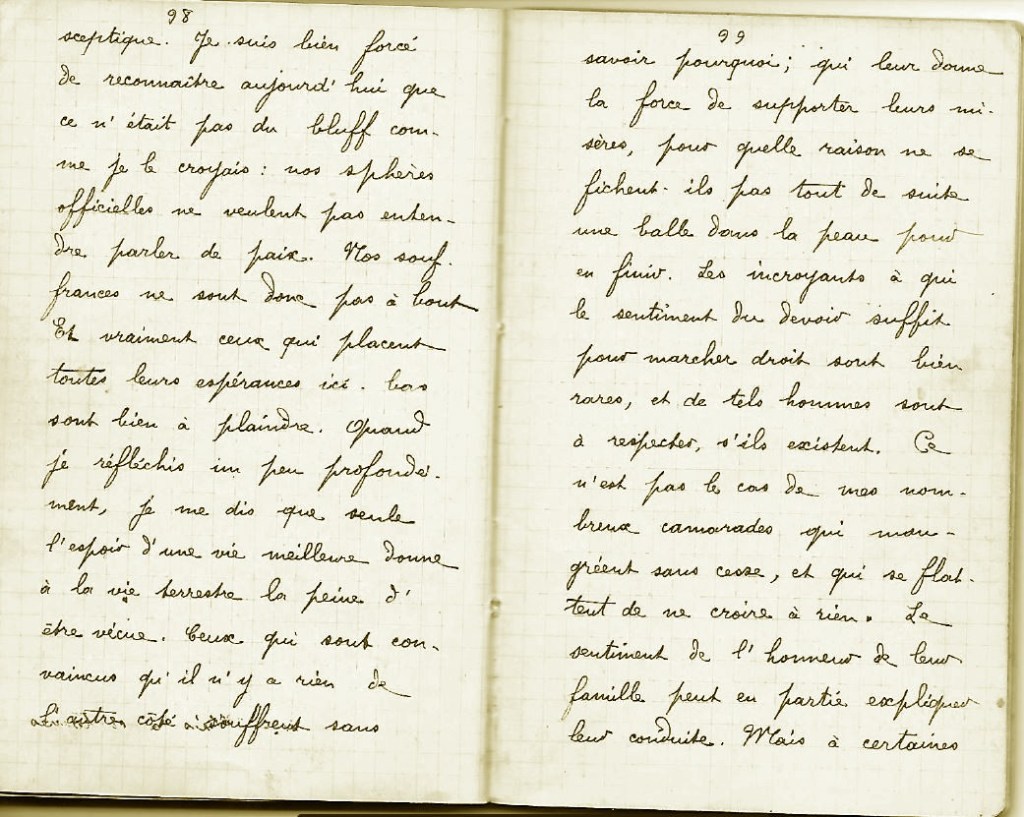 98
sceptique. Je suis bien forcé
de reconnaître aujourd'hui que
ce n'était pas du bluff com-
me je le croyais : nos sphères
officielles ne veulent pas enten-
dre parler de paix. Nos souf-
frances ne sont donc pas à bout
Et vraiment ceux qui placent
toutes leurs espérances ici-bas
sont bien à plaindre. Quand
je réfléchis un peu profondé-
ment, je me dis que seule
l'espoir d'une vie meilleure donne
à la vie terrestre la peine d'
être vécue. Ceux qui sont con-
vaincus qu'il n'y a rien de
l'autre côté souffrent sans
99
savoir pourquoi ; qui leur donne
la force de supporter leurs mi-
sères, pour quelle raison ne se
fichent-ils pas tout de suite
une balle dans la peau pour
en finir. Les incroyants à qui
le sentiment du devoir suffit
pour marcher droit sont bien
rares, et de tels hommes sont
à respecter, s'ils existent. Ce
n'est pas le cas de mes nom-
breux camarades qui mau-
gréent sans cesse, et qui se flat-
tent de ne croire à rien. Le
sentiment de l'honneur de leur
famille peut en partie expliquer
leur conduite. Mais à certaines